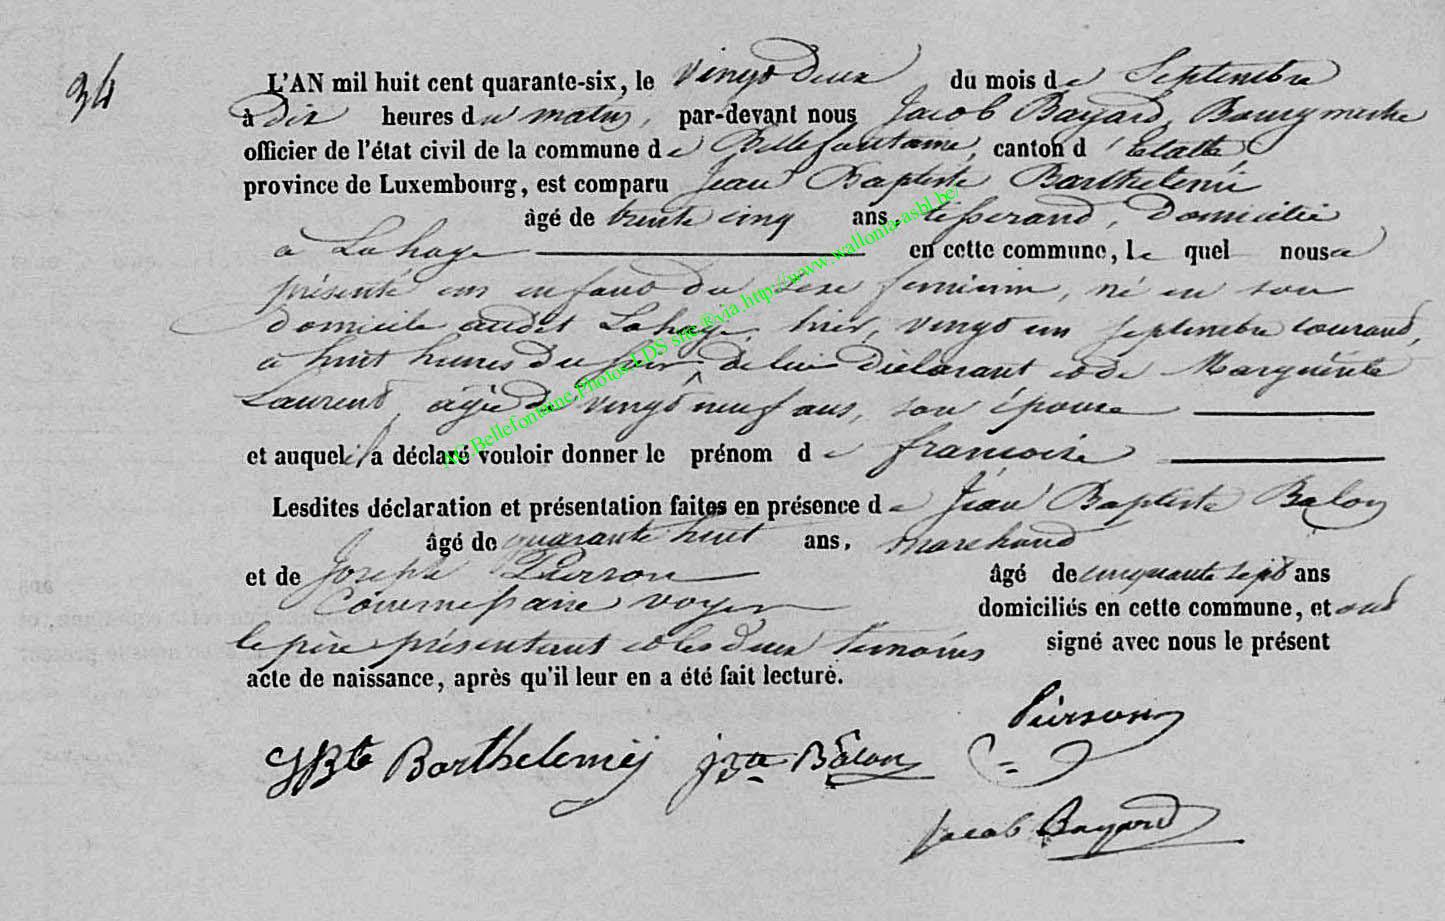 34
L'AN mil huit cent quarante-six, le vingt deux du mois de Septembre
à Dix heures du matin, par-devant nous Jacob Bayard, Bourgmestre
officier de l'état civil de la commune de Bellefontaine, canton d'Etalle,
province de Luxembourg, est comparu Jean Baptiste Barthelemi
âgé de trente cinq ans, tisserand, Domicilié
à Lahage en cette commune, le quel nous a
présenté un enfant du sexe feminin, né en son
domicile audit Lahage, hier, vingt un septembre courant,
à huit heures du soir, de lui Déclarant et de Marguerite
Laurent, agée de vingt neuf ans, son épouse
et auquel il a déclaré vouloir donner le prénom de francoise
Lesdites déclaration et présentation faites en présence de Jean Baptiste Balon
âgé de quarante huit ans, marchand
et de Joseph Pierson âgé de cinquante sept ans
Commissaire voyer domiciliés en cette commune, et ont
le père présentant et les deux témoins signé avec nous le présent
acte de naissance, après qu'il leur en a été fait lecture.
Pierson
JBte Barthelemÿ jbte Balon
Jacob Bayard
AC Bellefontaine Photos LDS site ®via http://www.wallonia-asbl.be/